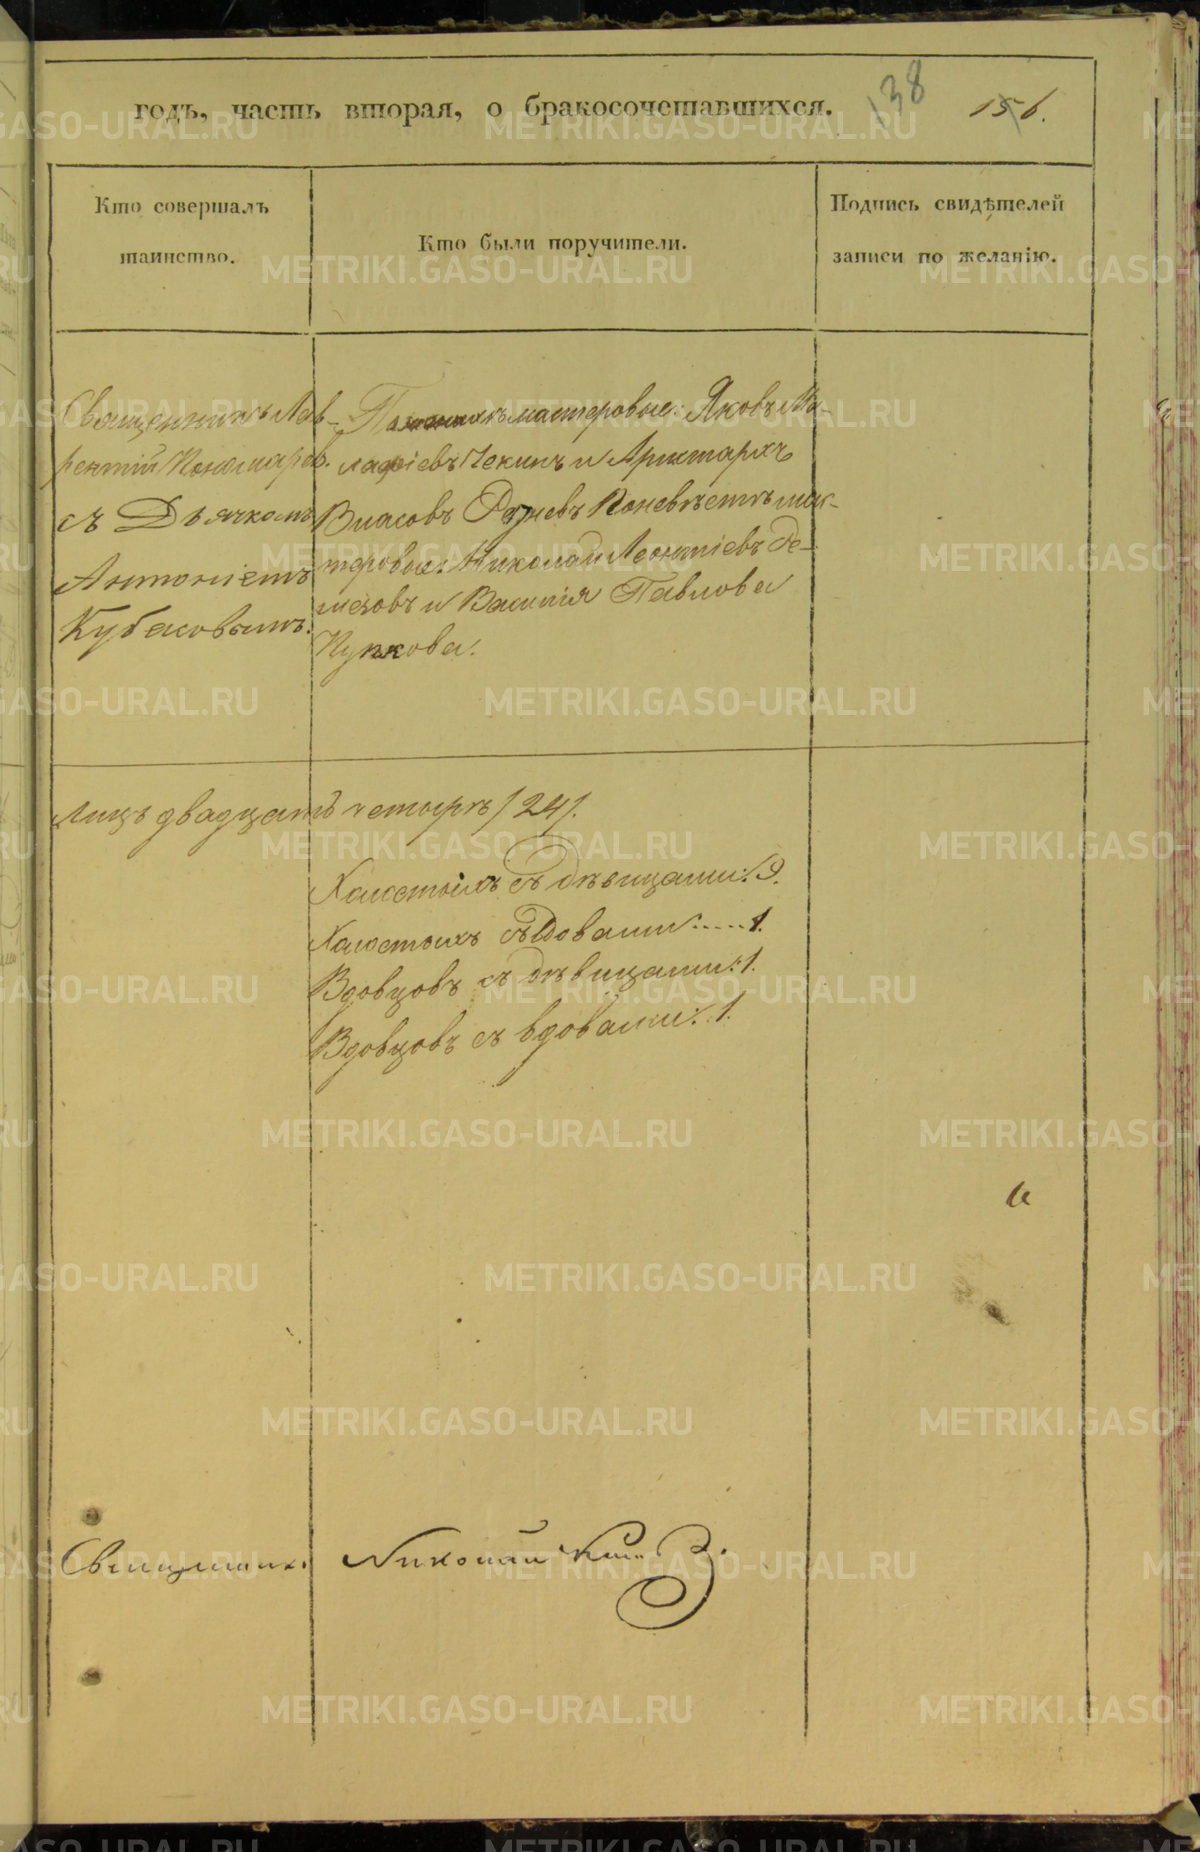 годъ, часть вторая, о бракосочетавшихся.
138
156.
Кто совершалъ
таинство.
Кто были поручители.
Подпись свидѣтелей
записи по желанію.
Священникъ Лав-
рентій Пономарев.
съ Дьячкомъ
Антоніемъ
Кубасовымъ.
По женихѣ мастеровые: Яковъ Ма-
Чекинъ и Аристархъ
Власовъ По невѣстѣ мас-
теровые: Николай Леонтіевъ
и Василія Павлова
Пупкова.
Лицъ двадцать четыре /24/.
Холостыхъ съ дѣвицами: 9.
Холостыхъ съ вдовами.....1.
Вдовцовъ съ дѣвицами: 1.
Вдовцовъ съ вдовами: 1.
Священникъ Николай
METRIKI.GASO-URAL.RU